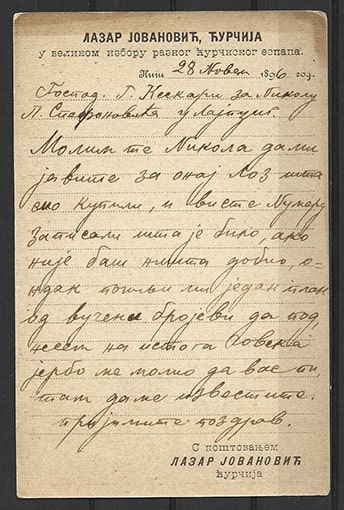 ЛАЗАР ЈОВАНОВИЋ, ЋУРЧИЈА
у великом избору разног ћурчиског еспапа.
Ниш 28 Новем 1896 год.
Господ. Г. Кескари за Николу
П. Стефановића у Лајпциг.
Молим те Никола да ми
јавите за онај Лоз што
смо купили, и висте Нумеру
записали шта је било, ако
није баш ништа добио, о-
ндак пошљи ми један план
од вучени бројеви да под
несем на истога човека
јербо ме молио да вас пи,
там да ме известите.
примите поздрав.
С поштовањем
ЛАЗАР ЈОВАНОВИЋ
ћурчија